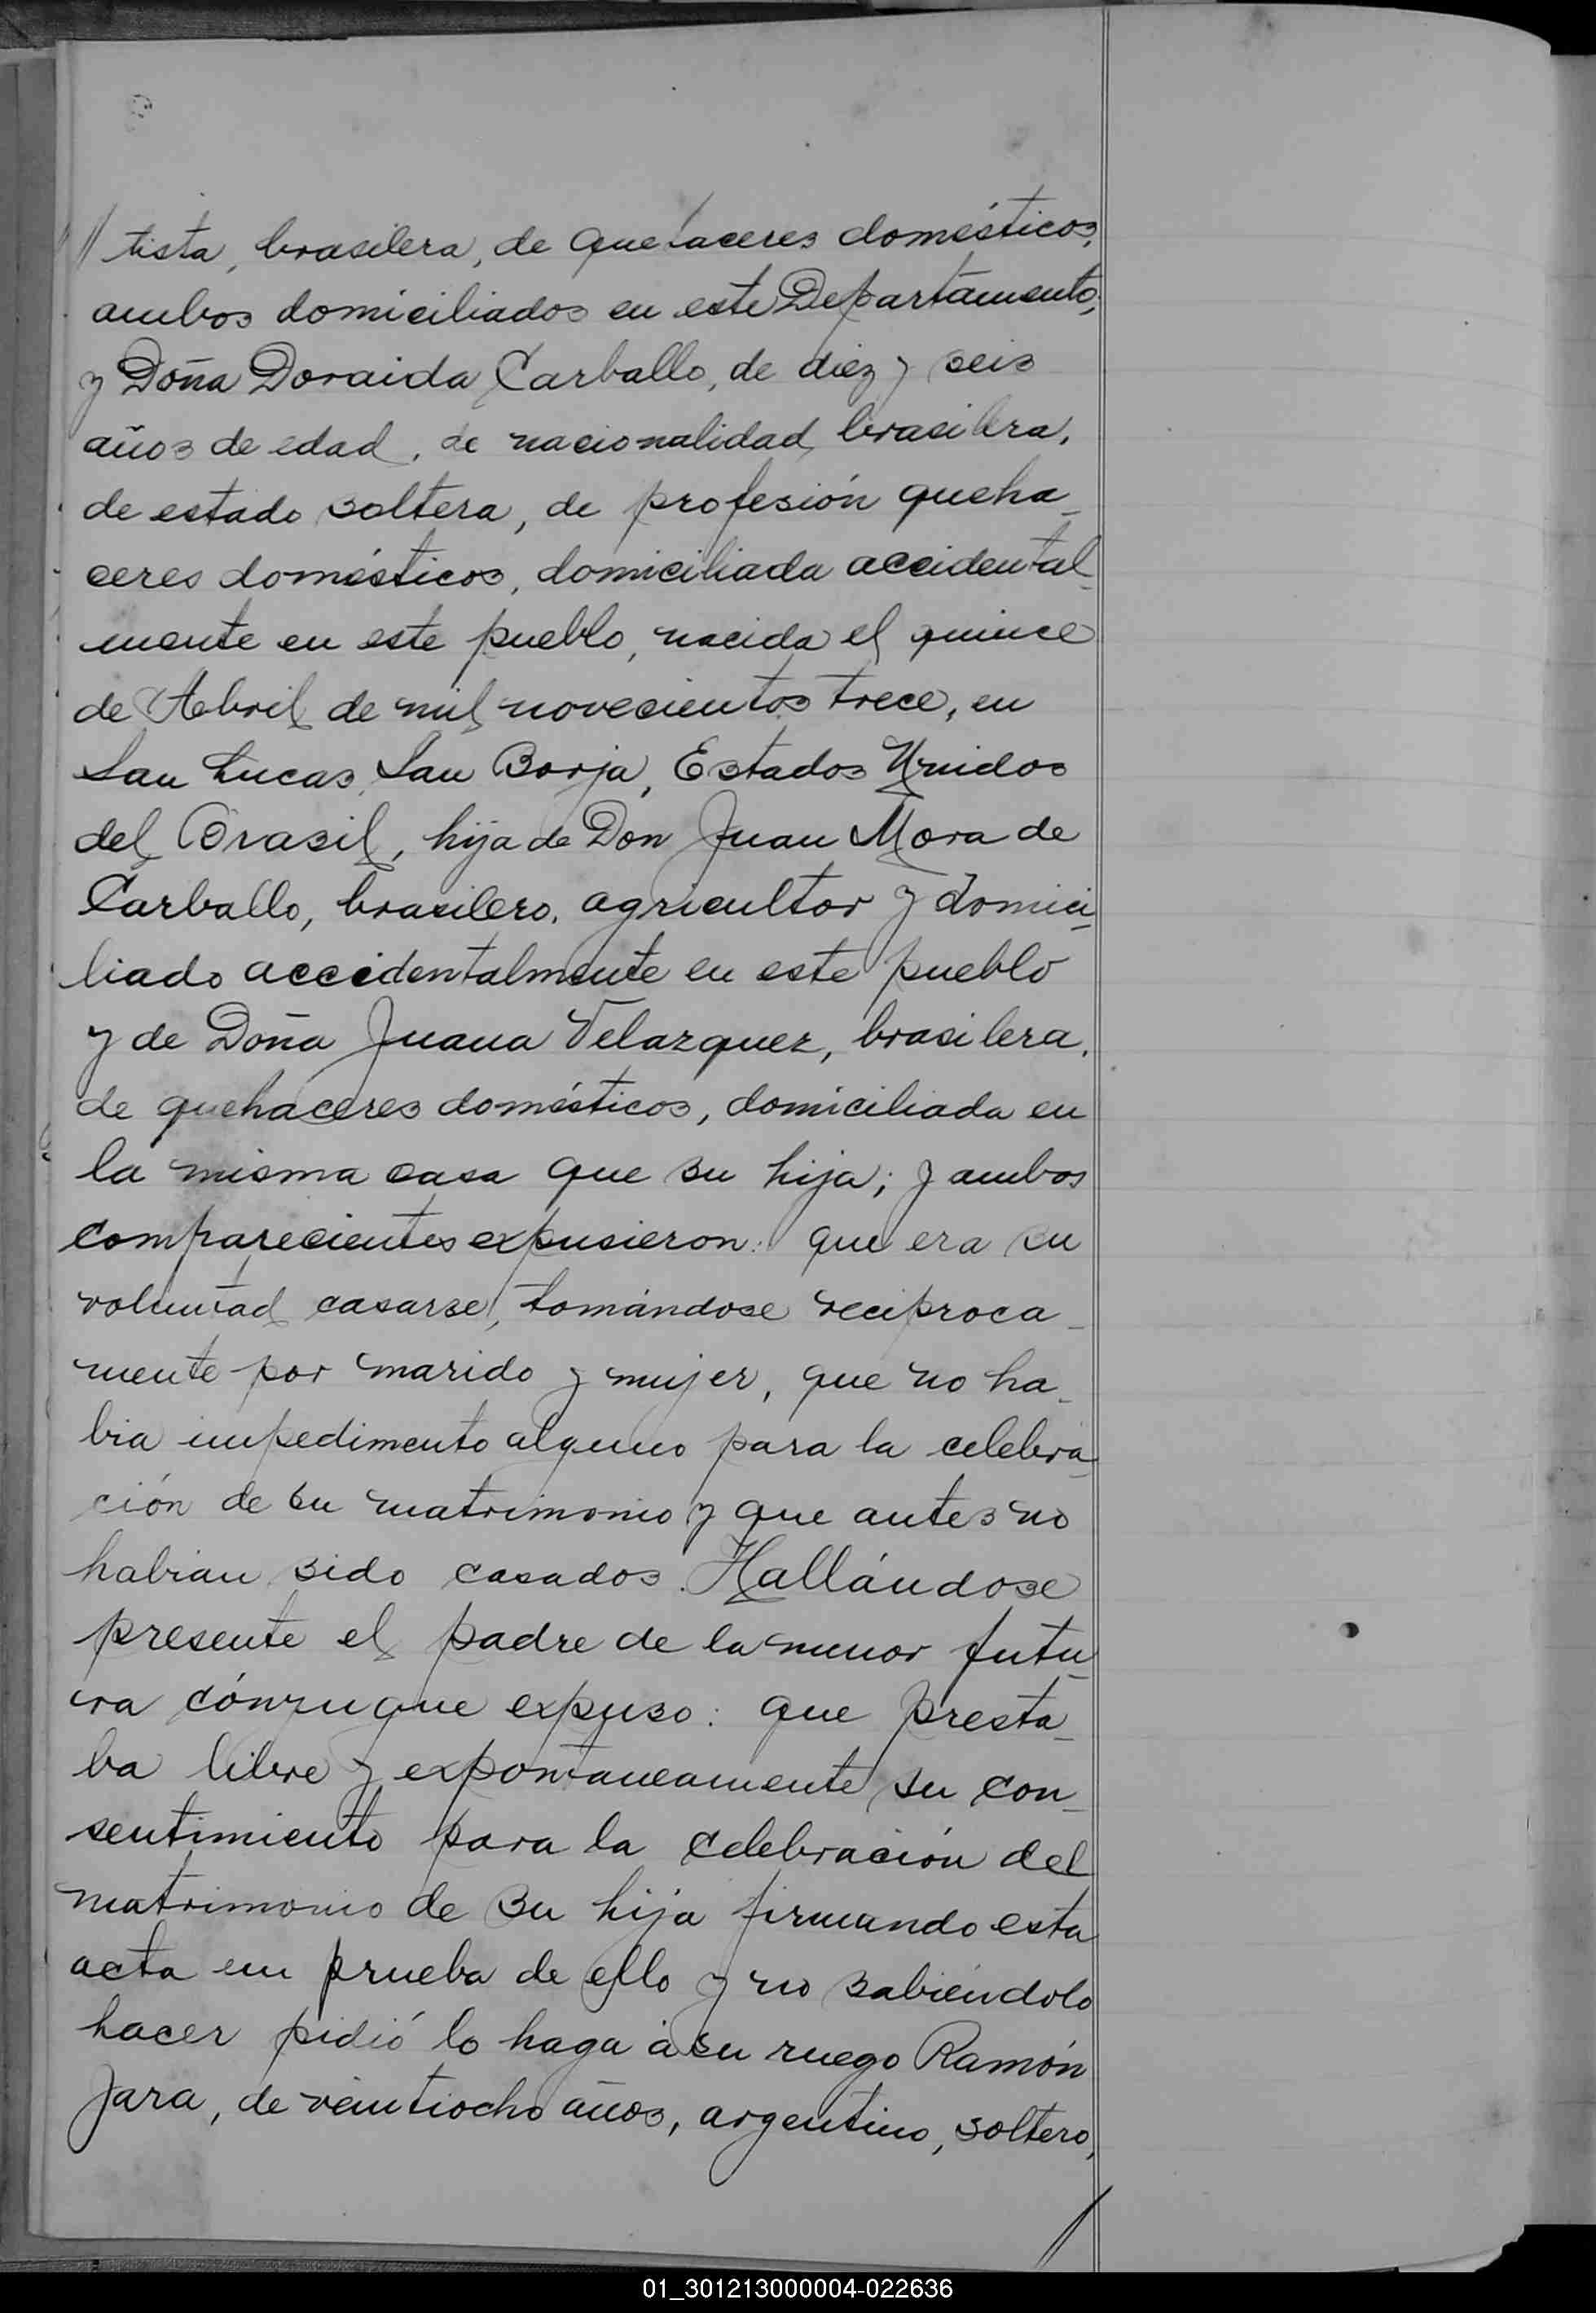 // tista, brasilera, de quehaceres domésticos,
ambos domiciliados en este Departamento,
y Doña Doraida Carballo, de diez y seis
años de edad, de nacionalidad brasilera,
de estado soltera, de profesión queha-
ceres domésticos, domiciliada accidental-
mente en este pueblo, nacida el quince
de Abril de mil novecientos trece, en
San Lucas, San Borja, Estados Unidos
del Brasil, hija de Don Juan Mora de
Carballo, brasilero, agricultor y domici-
liado accidentalmente en este pueblo
y de Doña Juana Velazquez, brasilera,
de quehaceres domésticos, domiciliada en
la misma casa que su hija; y ambos
comparecientes expusieron: que era su
voluntad casarse, tomándose reciproca-
mente por marido y mujer, que no ha-
bia impedimento alguno para la celebra-
ción de su matrimonio y que antes no
habian sido casados. Hallándose
presente el padre de la menor futu-
ra cónyugue expuso: que presta-
ba libre y expontaneamente su con-
sentimiento para la celebración del
matrimonio de su hija firmando esta
acta en prueba de ello y no sabiéndolo
hacer pidió lo haga á su ruego Ramón
Jara, de veintiocho años, argentino, soltero,
/
01_301213000004-022636